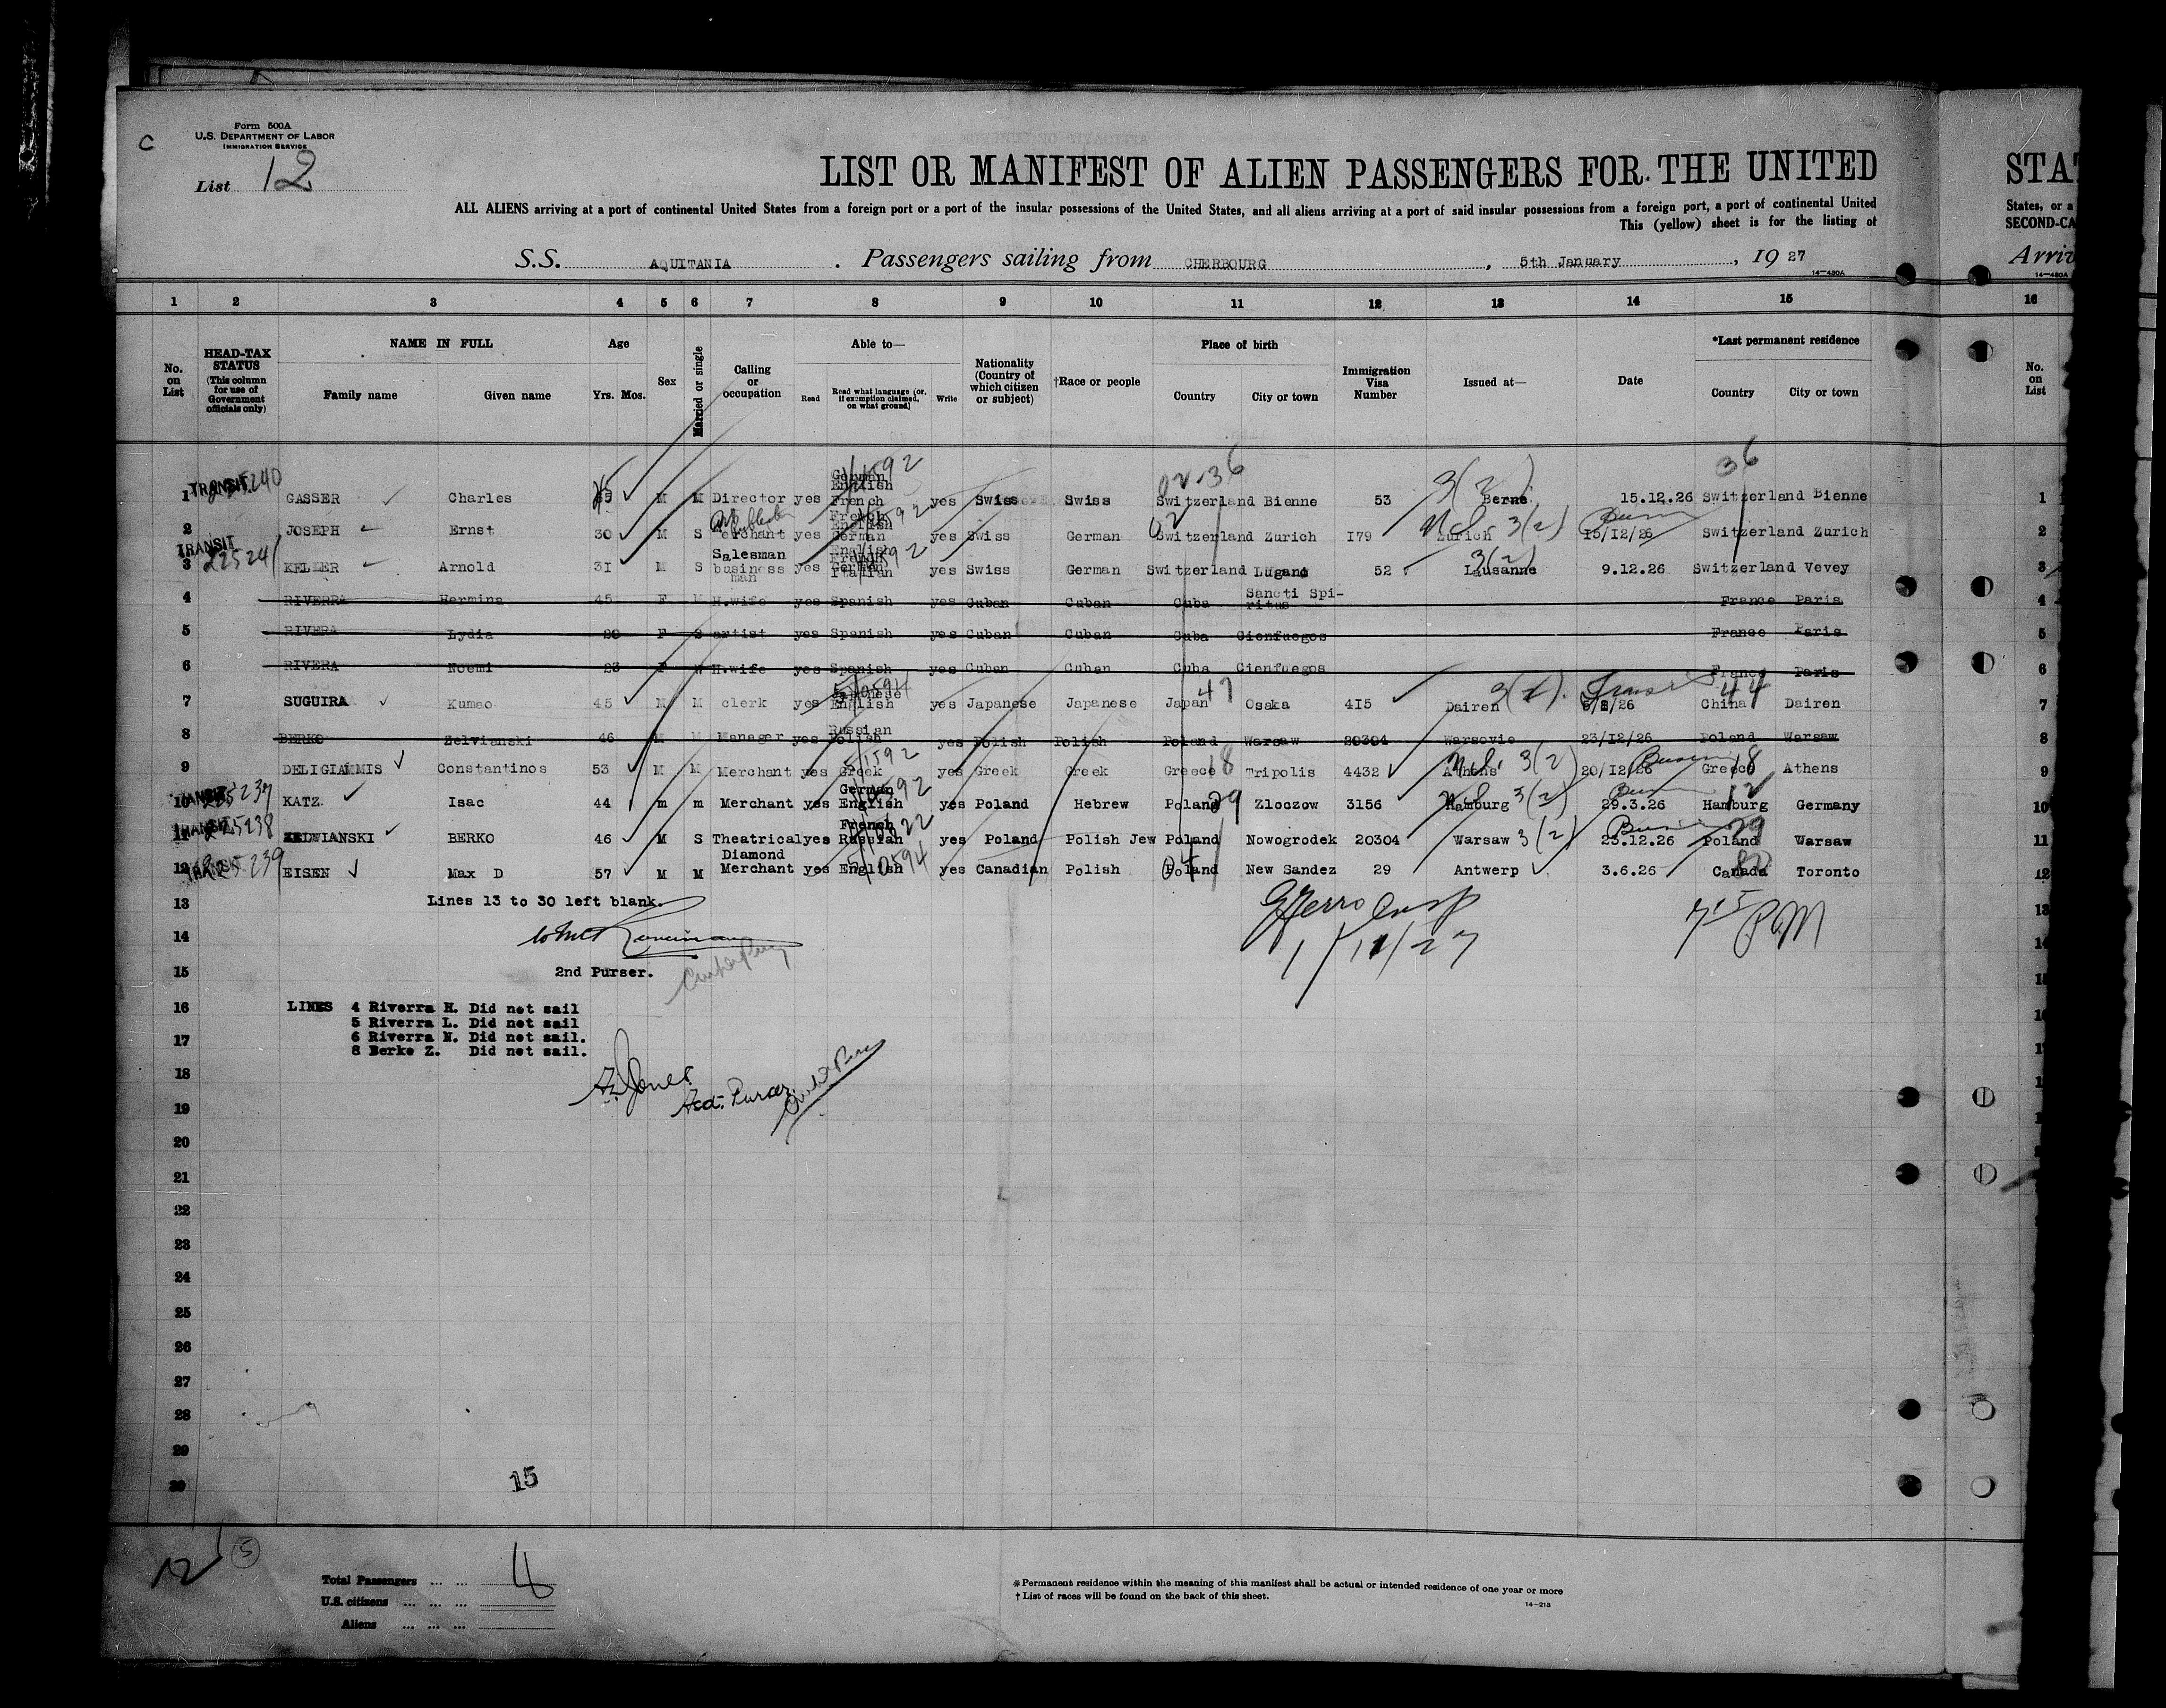 C
Form 500A
U.S. DEPARTMENT OF LABOR
IMMIGRATION SERVICE
List 12
LIST OR MANIFEST OF ALIEN PASSENGERS FOR THE UNITED
STAT
ALL ALIENS arriving at a port of continental United States from a foreign port or a port of the insular possessions of the United States, and all aliens arriving at a port of said insular possessions from a foreign port, a port of continental United
States, or a
This (yellow) sheet is for the listing of
SECOND-CA
S.S. AQUITANIA. Passengers sailing from CHERBOURG, 5th January, 1927
Arriv
14-480A
14-480A
1 2 3 4 5 6 7 8 9 10 11 12 13 14 15 16
No. on List
HEAD-TAX STATUS (This column for use of Government officials only)
NAME IN FULL
Family name Given name
Age
Yrs. Mos.
Sex
Married or single
Calling or occupation
Able to—
Read Read what language [or, if exemption claimed, on what ground] Write
Nationality (Country of which citizen or subject)
†Race or people
Place of birth
Country City or town
Immigration Visa Number
Issued at—
Date
*Last permanent residence
Country City or town
No. on List
1 TRANSIT 240 GASSER Charles M M Director yes German English French 1592 yes Swiss Swiss 02-36 Switzerland Bienne 53 3(2) Berne 15.12.26 36 Switzerland Bienne 1
2 JOSEPH Ernst 30 M S Merchant yes French English German yes Swiss German 02 Switzerland Zurich 179 Zurich 3(2) 15/12/26 Switzerland Zurich 2
3 TRANSIT 225241 KELLER Arnold 31 M S Salesman business man yes English French German Italian yes Swiss German Switzerland Lugano 52 3(2) Lausanne 9.12.26 Switzerland Vevey 3
4 RIVERRA Hermina 45 F M H.wife yes Spanish yes Cuban Cuban Cuba Sancti Spi-ritus France Paris 4
5 RIVERA Lydia 20 F S artist yes Spanish yes Cuban Cuban Cuba Cienfuegos France Paris 5
6 RIVERA Noemi 23 F W H.wife yes Spanish yes Cuban Cuban Cuba Cienfuegos France Paris 6
7 SUGUIRA Kumao 45 M M clerk yes Japanese English yes Japanese Japanese Japan 47 Osaka 415 Dairen 3(2). /26 China 44 Dairen 7
8 BERKO Zelvianski 46 M M Manager yes Russian Polish yes Polish Polish Poland Warsaw 20304 Warsovie 23/12/26 Poland Warsaw 8
9 DELIGIAMMIS Constantinos 53 M M Merchant yes Greek 1592 yes Greek Greek Greece 18 Tripolis 4432 Athens 3(2) 20/12/26 Greece 18 Athens 9
10 TRANSIT 225237 KATZ Isac 44 m m Merchant yes German English yes Poland Hebrew Poland 29 Zloczow 3156 Hamburg 3(2) 29.3.26 12 Hamburg Germany 10
11 TRANSIT 225238 ZELVIANSKI BERKO 46 M S Theatrical yes French Russian yes Poland Polish Jew Poland Nowogrodek 20304 Warsaw 3(2) 23.12.26 Poland 29 Warsaw 11
12 TRANSIT 225239 EISEN Max D 57 M M Diamond Merchant yes English 0594 yes Canadian Polish Poland New Sandez 29 Antwerp 3.6.26 Canada Toronto 12
13 Lines 13 to 30 left blank. 13
14 1/11/27 7 15 P.M 14
15 2nd Purser.
16 LINES 4 Riverra H. Did not sail
5 Riverra L. Did not sail
17 6 Riverra N. Did not sail.
8 Berko Z. Did not sail.
18 Jones
19 Asst. Purser
20
21
22
23
24
25
26
27
28
29
30
15
12 5
Total Passengers ... ...
U.S. citizens ... ... ...
Aliens ... ... ...
*Permanent residence within the meaning of this manifest shall be actual or intended residence of one year or more
† List of races will be found on the back of this sheet.
14-213